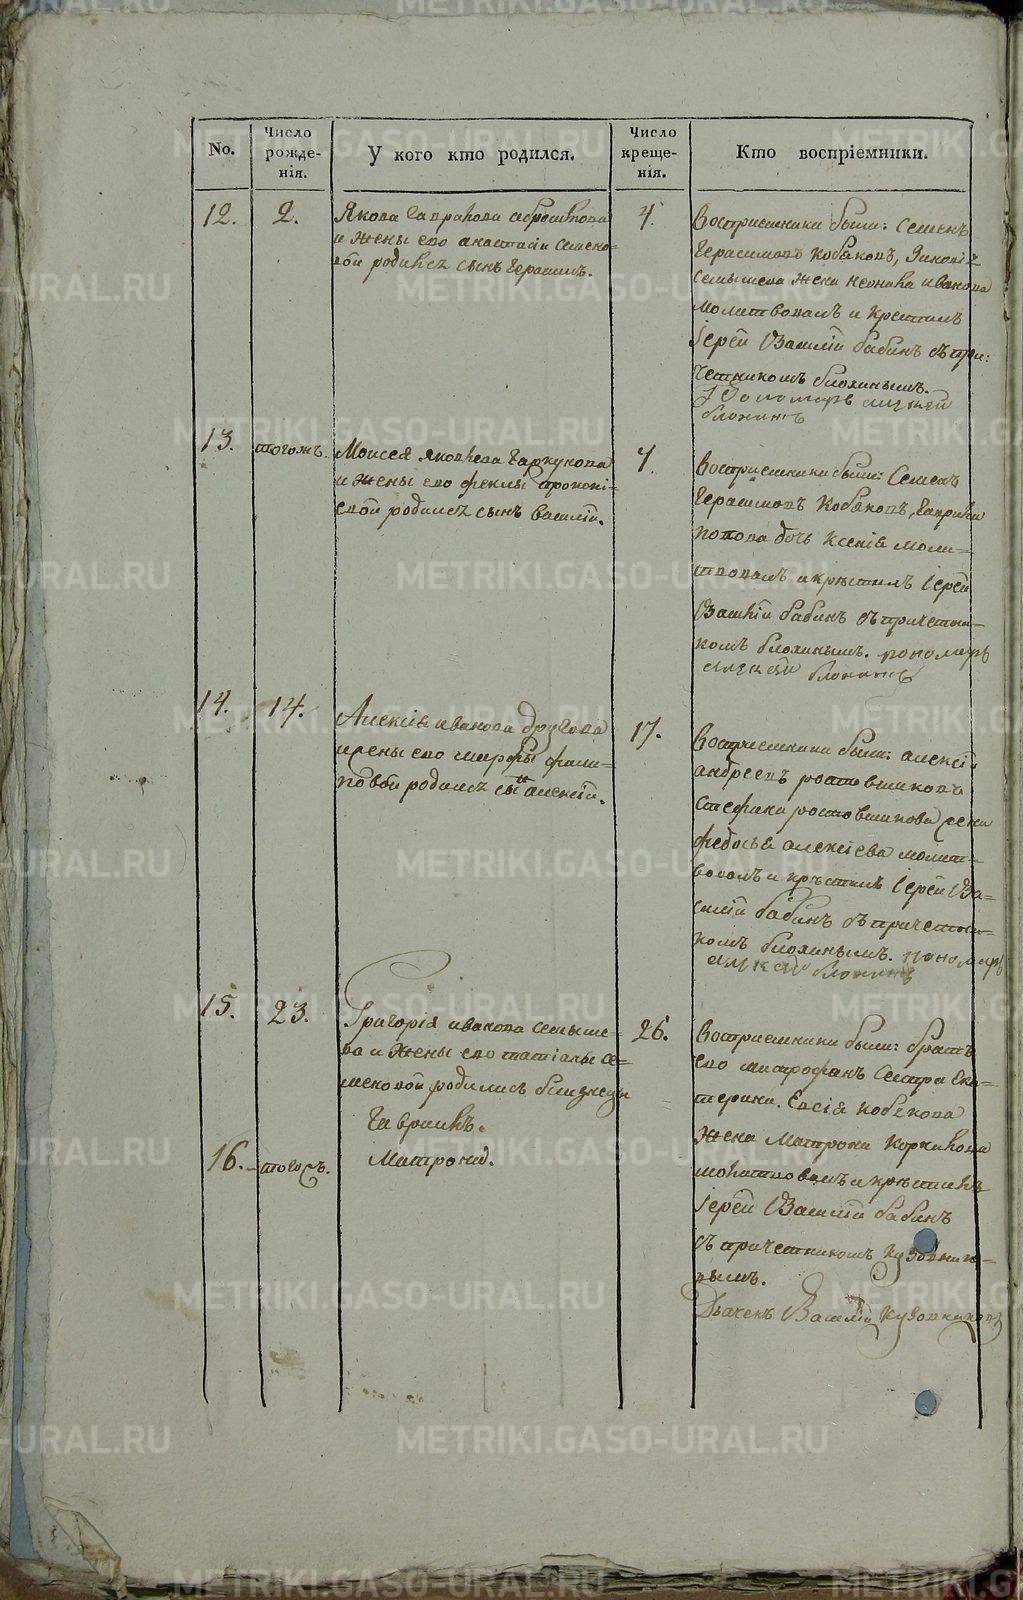 No.
Число рожде-нія.
У кого кто родился.
Число креще-нія.
Кто воспріемники.
12.
2.
Якова Гаврилова
и жены его анастасіи семено-
вой родился сынъ Герасимъ.
4.
Восприемники были: Семенъ
Герасимовъ Кобяковъ,
жена иванова
молитвовалъ и крестилъ
Іерей Василій бабинъ съ при:
четникомъ блохинымъ.
Пономарь алексей
блохинъ
13.
тогожъ.
Моисея яковлева
и жены его феклы прокопі-
евой родился сынъ василій.
4.
Восприемники были: Семенъ
Герасимовъ Кобяковъ, Гаврила
попова дочь ксенія моли-
твовалъ и крѣстилъ Іерей
Василій бабинъ съ причетни-
комъ блохинымъ. пономарь
алексей блохинъ
14.
14.
Алексія иванова другова
и жены его марфы фили-
повой родился сынъ алексій.
17.
Восприемники были: алексій
андреевъ ростовщиковъ
стефана ростовщикова жена
федосья алексіева молит-
вовалъ и крѣстилъ Іерей Ва-
силій бабинъ съ причетни-
комъ блохинымъ. пономарь
алексей блохинъ
15.
23.
Григорія иванова семыше-
ва и жены его татіаны се-
меновой родились близнецы
Гавриилъ.
26.
Восприемники были: братъ
его митрофанъ сестра ека-
терина. кобякова
жена матрона
молитвовалъ и крѣстилъ
Іерей Василій бабинъ
съ причетникомъ кузовнико-
вымъ.
Дьячекъ Василій Кузовниковъ
16.
тогожъ.
Матрона.
METRIKI.GASO-URAL.RU